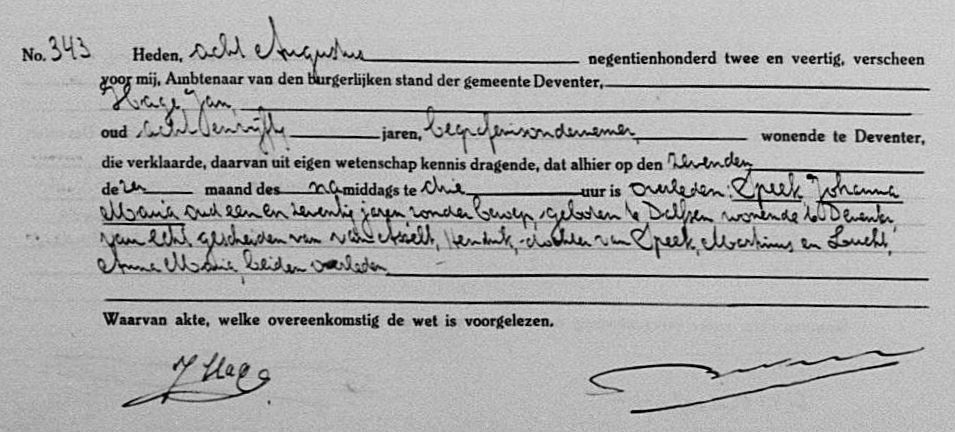 No. 343 Heden, acht Augustus negentienhonderd twee en veertig, verscheen
voor mij, Ambtenaar van den burgerlijken stand der gemeente Deventer,
Hage, Jan,
oud acht en vijftig jaren, begrafenisondernemer, wonende te Deventer,
die verklaarde, daarvan uit eigen wetenschap kennis dragende, dat alhier op den zevenden
dezer maand des namiddags te drie uur is overleden: Speek, Johanna
Maria oud een en zeventig jaren zonder beroep, geboren te Dalfsen wonende te Deventer
van echt gescheiden van van Asselt, Hendrik, dochter van Speek, Martinus en Lucht,
Anna Maria, beiden overleden
Waarvan akte, welke overeenkomstig de wet is voorgelezen.
J Hage